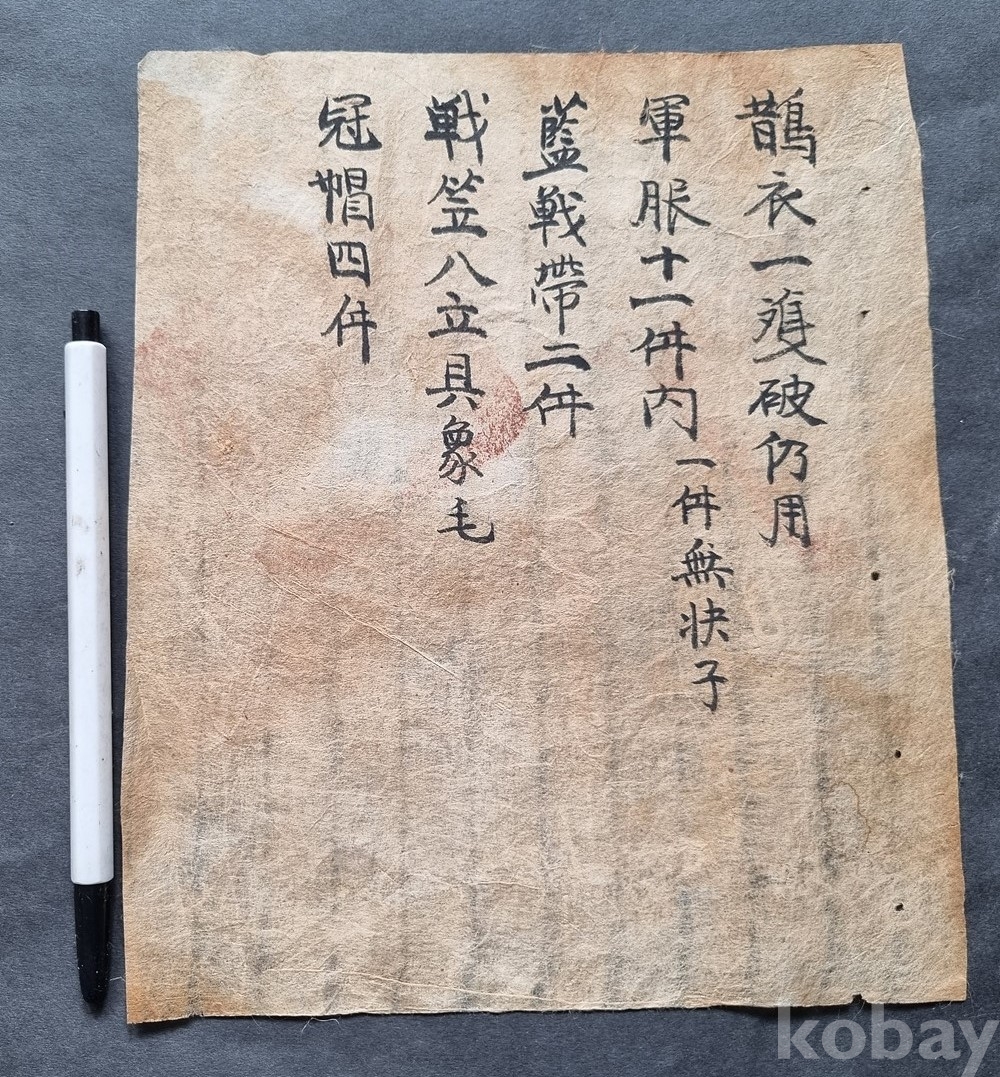 鵲衣一䨇破仍用
軍服十一件内一件無快子
藍戦帶二件
戦笠八立具象毛
冠帽四件
kobay